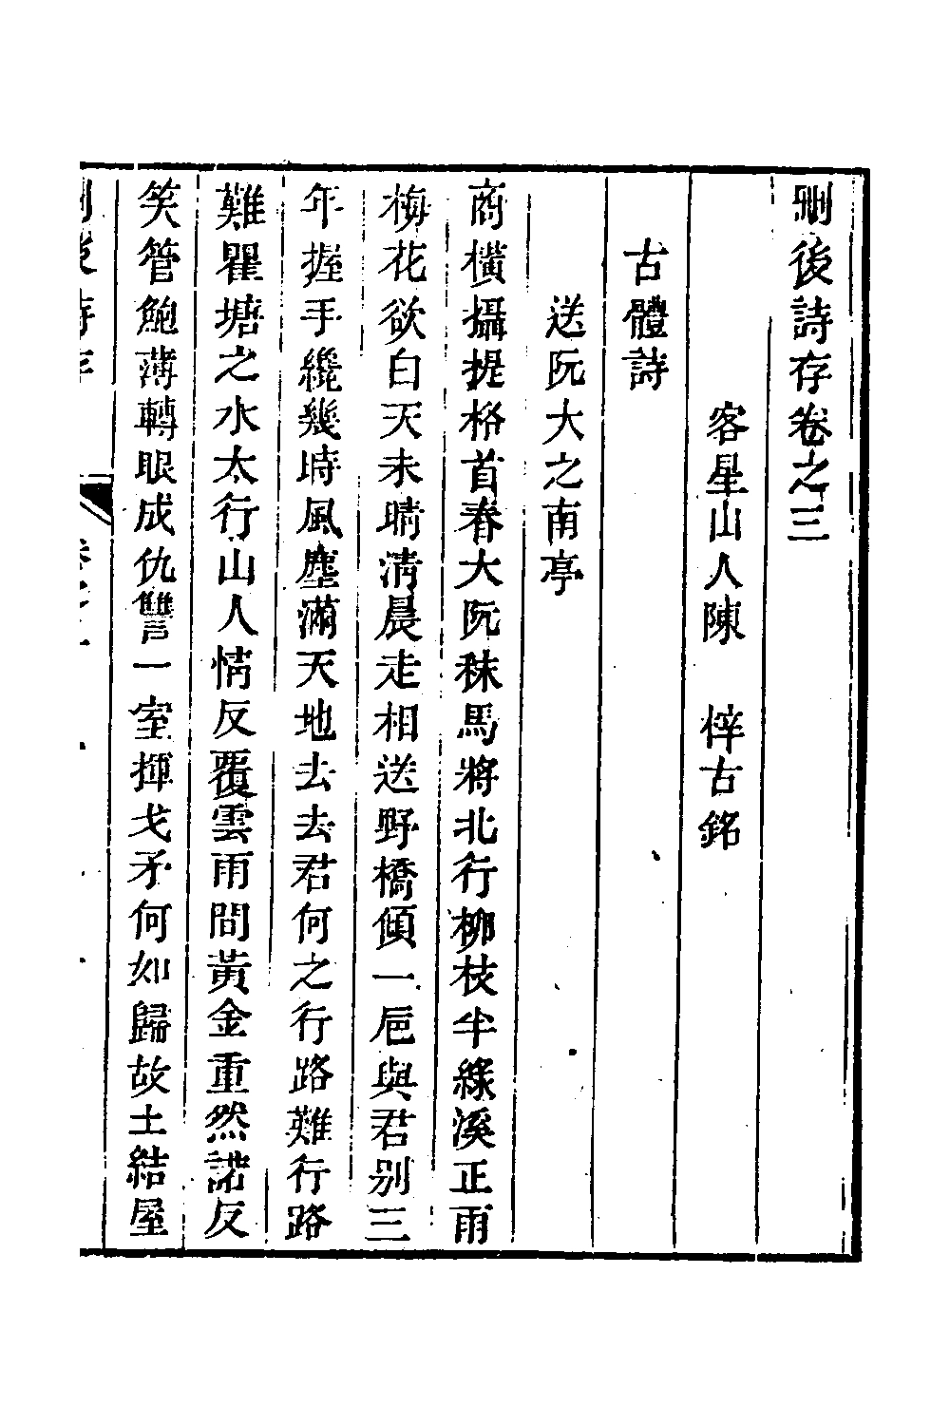 刪後詩存卷之三
客星山人陳　梓古銘
古體詩
送阮大之南亭
商橫攝提格首春大阮秣馬將北行柳枝半綠溪正雨
梅花欲白天未晴清晨走相送野橋傾一巵與君别三
年握手纔幾時風塵滿天地去去君何之行路難行路
難瞿塘之水太行山人情反覆雲雨間黃金重然諾反
笑管鮑薄轉眼成仇讐一室揮戈矛何如歸故土結屋